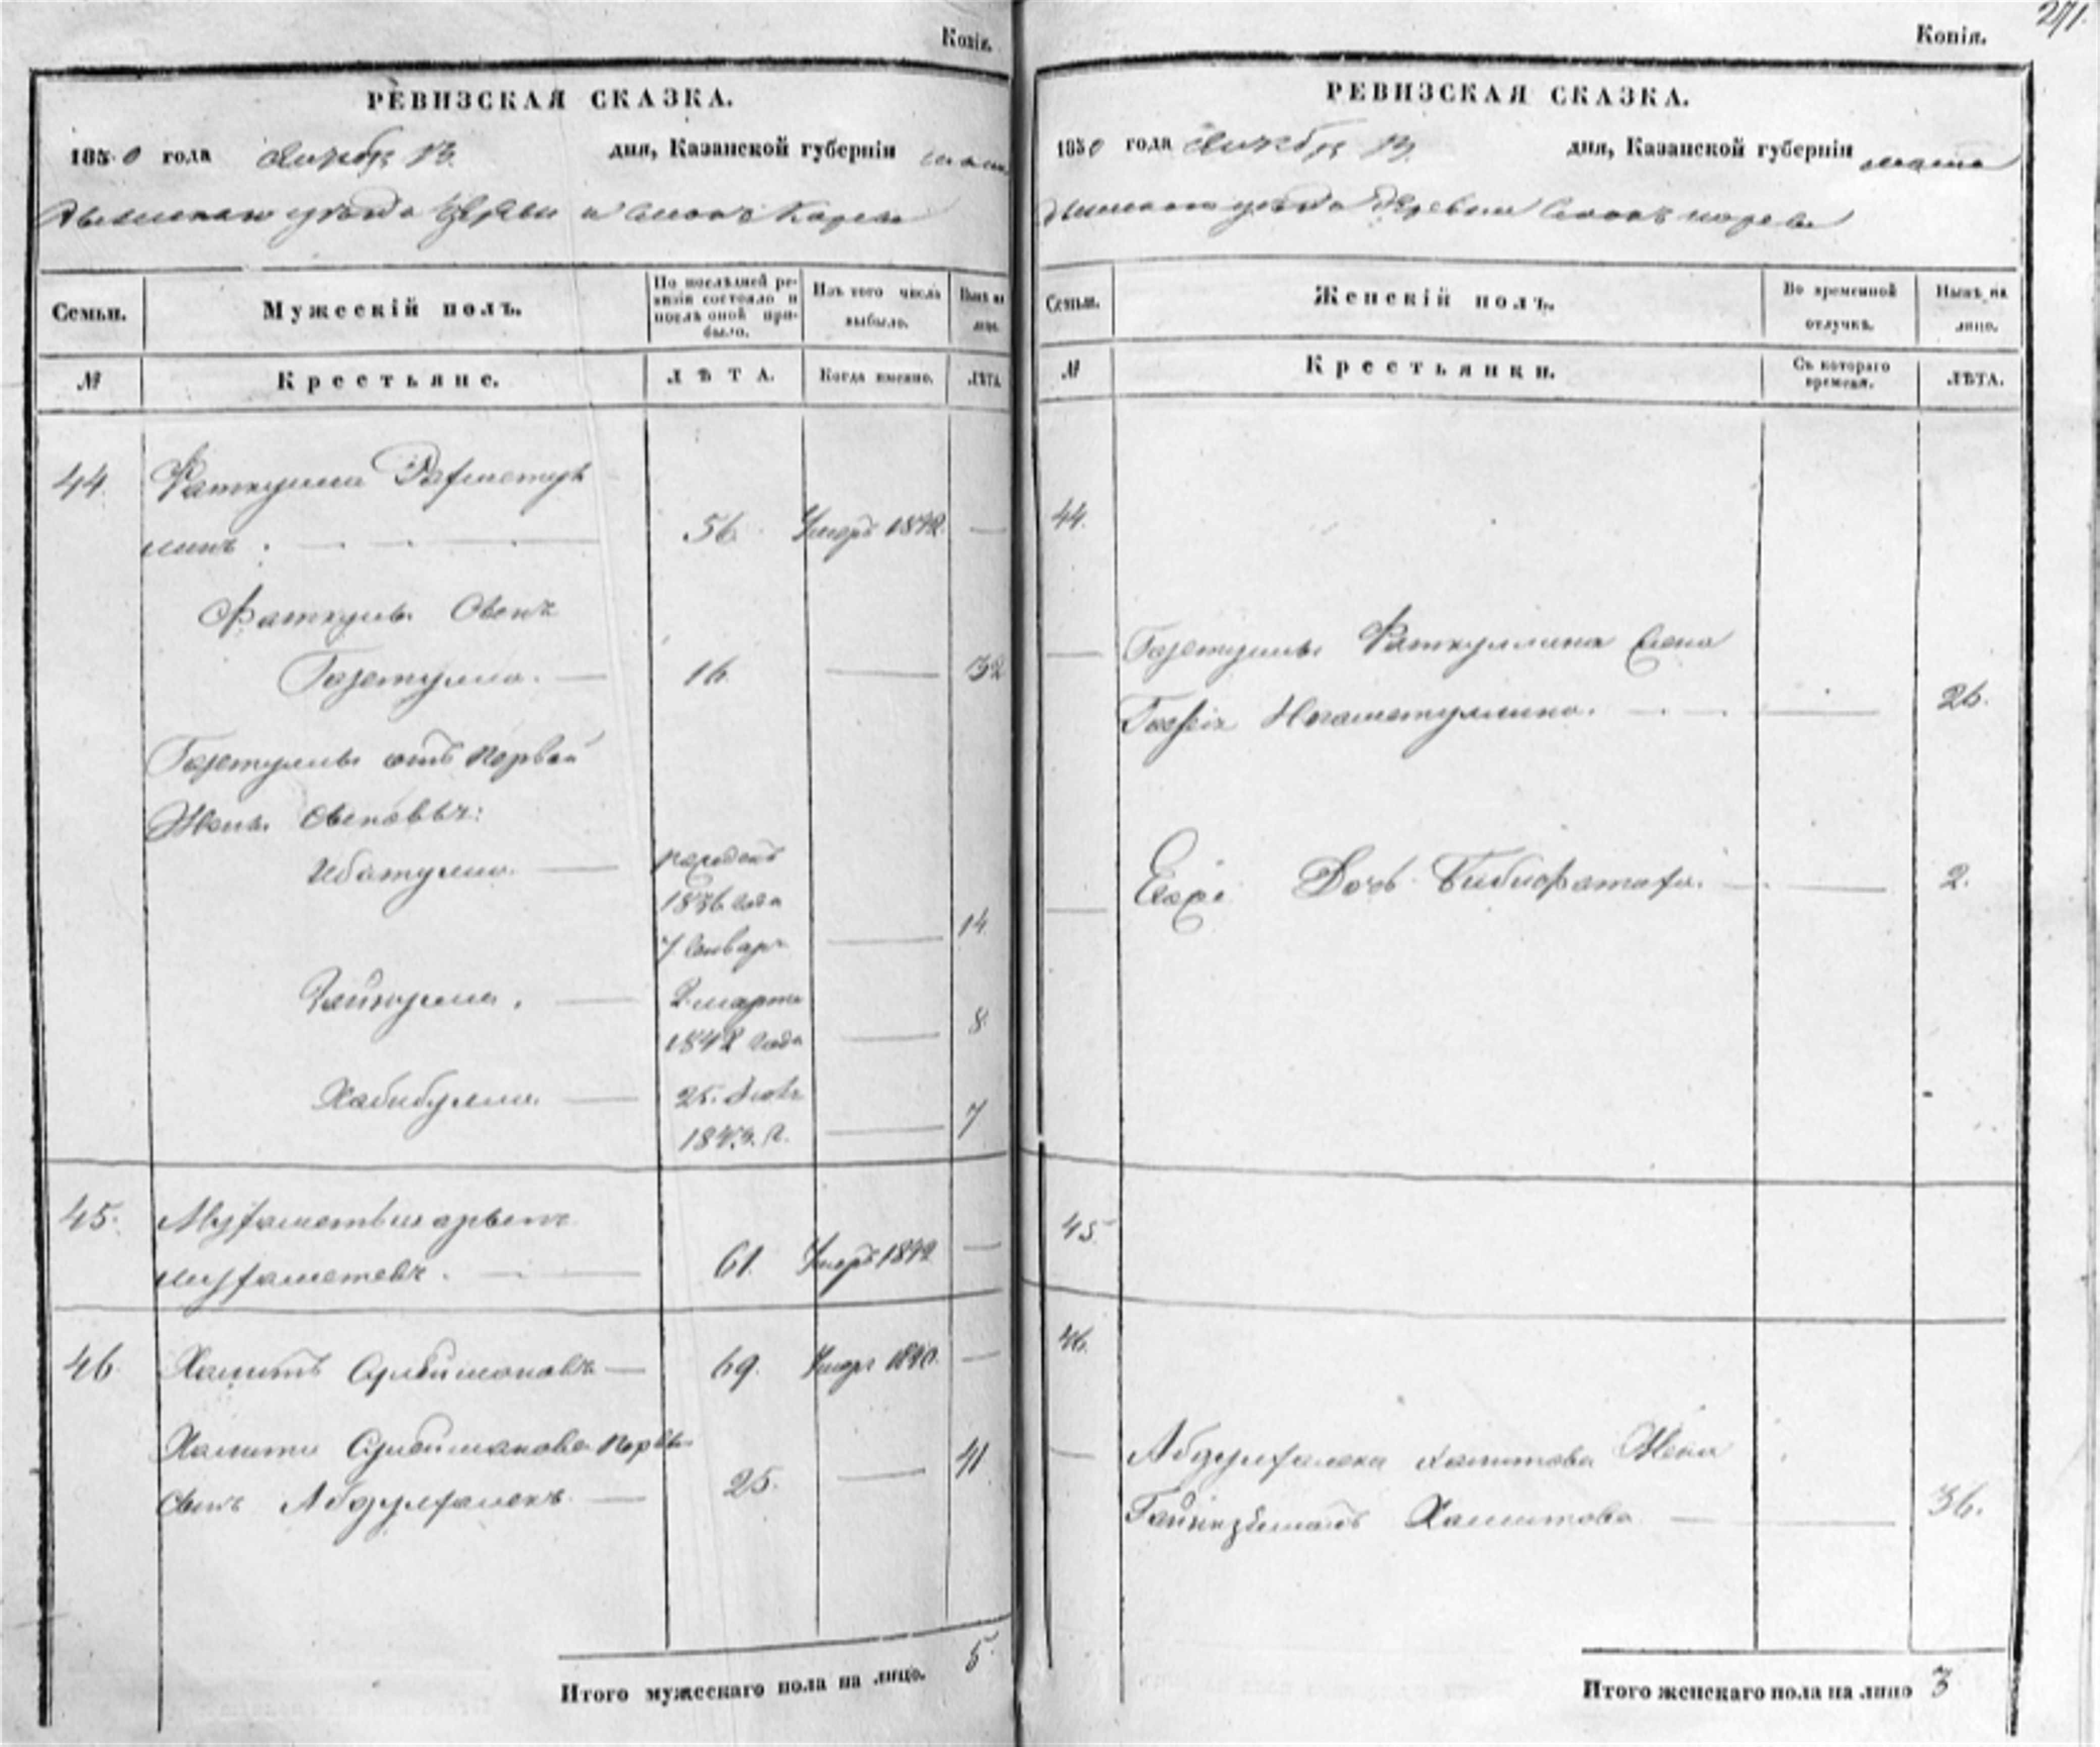 Копія.
РЕВИЗСКАЯ СКАЗКА.
1850 года Октябр 13. дня, Казанской губерніи
уѣзда
Семьи. Мужескій полъ. По послѣдней ревизіи состояло и послѣ оной прибыло. Изъ того числа выбыло. Нынѣ на лицо.
№ Крестьяне. ЛѢТА. Когда именно. ЛѢТА.
44. Фаткулла Рахметул
линъ. 56. Умеръ 1842. —
Фаткуллы Сынъ
Газетулла. — 16. — 32
Газетуллы отъ первой
Жены Сыновья:
Ибатулла. — рожденъ
1836 года
7 Генваря — 14
Зайнулла. — 2 марта
1842 года — 8.
Хабибулла. — 25. Іюля
1843. г. — 7
45.
Мухаметевъ. — 61. Умеръ 1842 —
46. Хамитъ Сулеймановъ — 69. Умеръ 1840. —
Хамита Сулейманова первы
Сынъ Абдулхаликъ. — 25. — 41
Итого мужескаго пола на лицо. 5.
271.
Копія.
РЕВИЗСКАЯ СКАЗКА.
1850 года Октябр 13. дня, Казанской губерніи
уѣзда Деревни
Семьи. Женскій полъ. Во временной отлучкѣ. Нынѣ на лицо.
№ Крестьянки. Съ котораго времени. ЛѢТА.
44.
— Газетуллы Фаткуллина жена
Нигаметуллина. — — 26.
— Ея Дочь Бибифатиха. — — 2.
45
46.
— Абдулхалика Хамитова Жена
Хамитова — — 36.
Итого женскаго пола на лицо 3